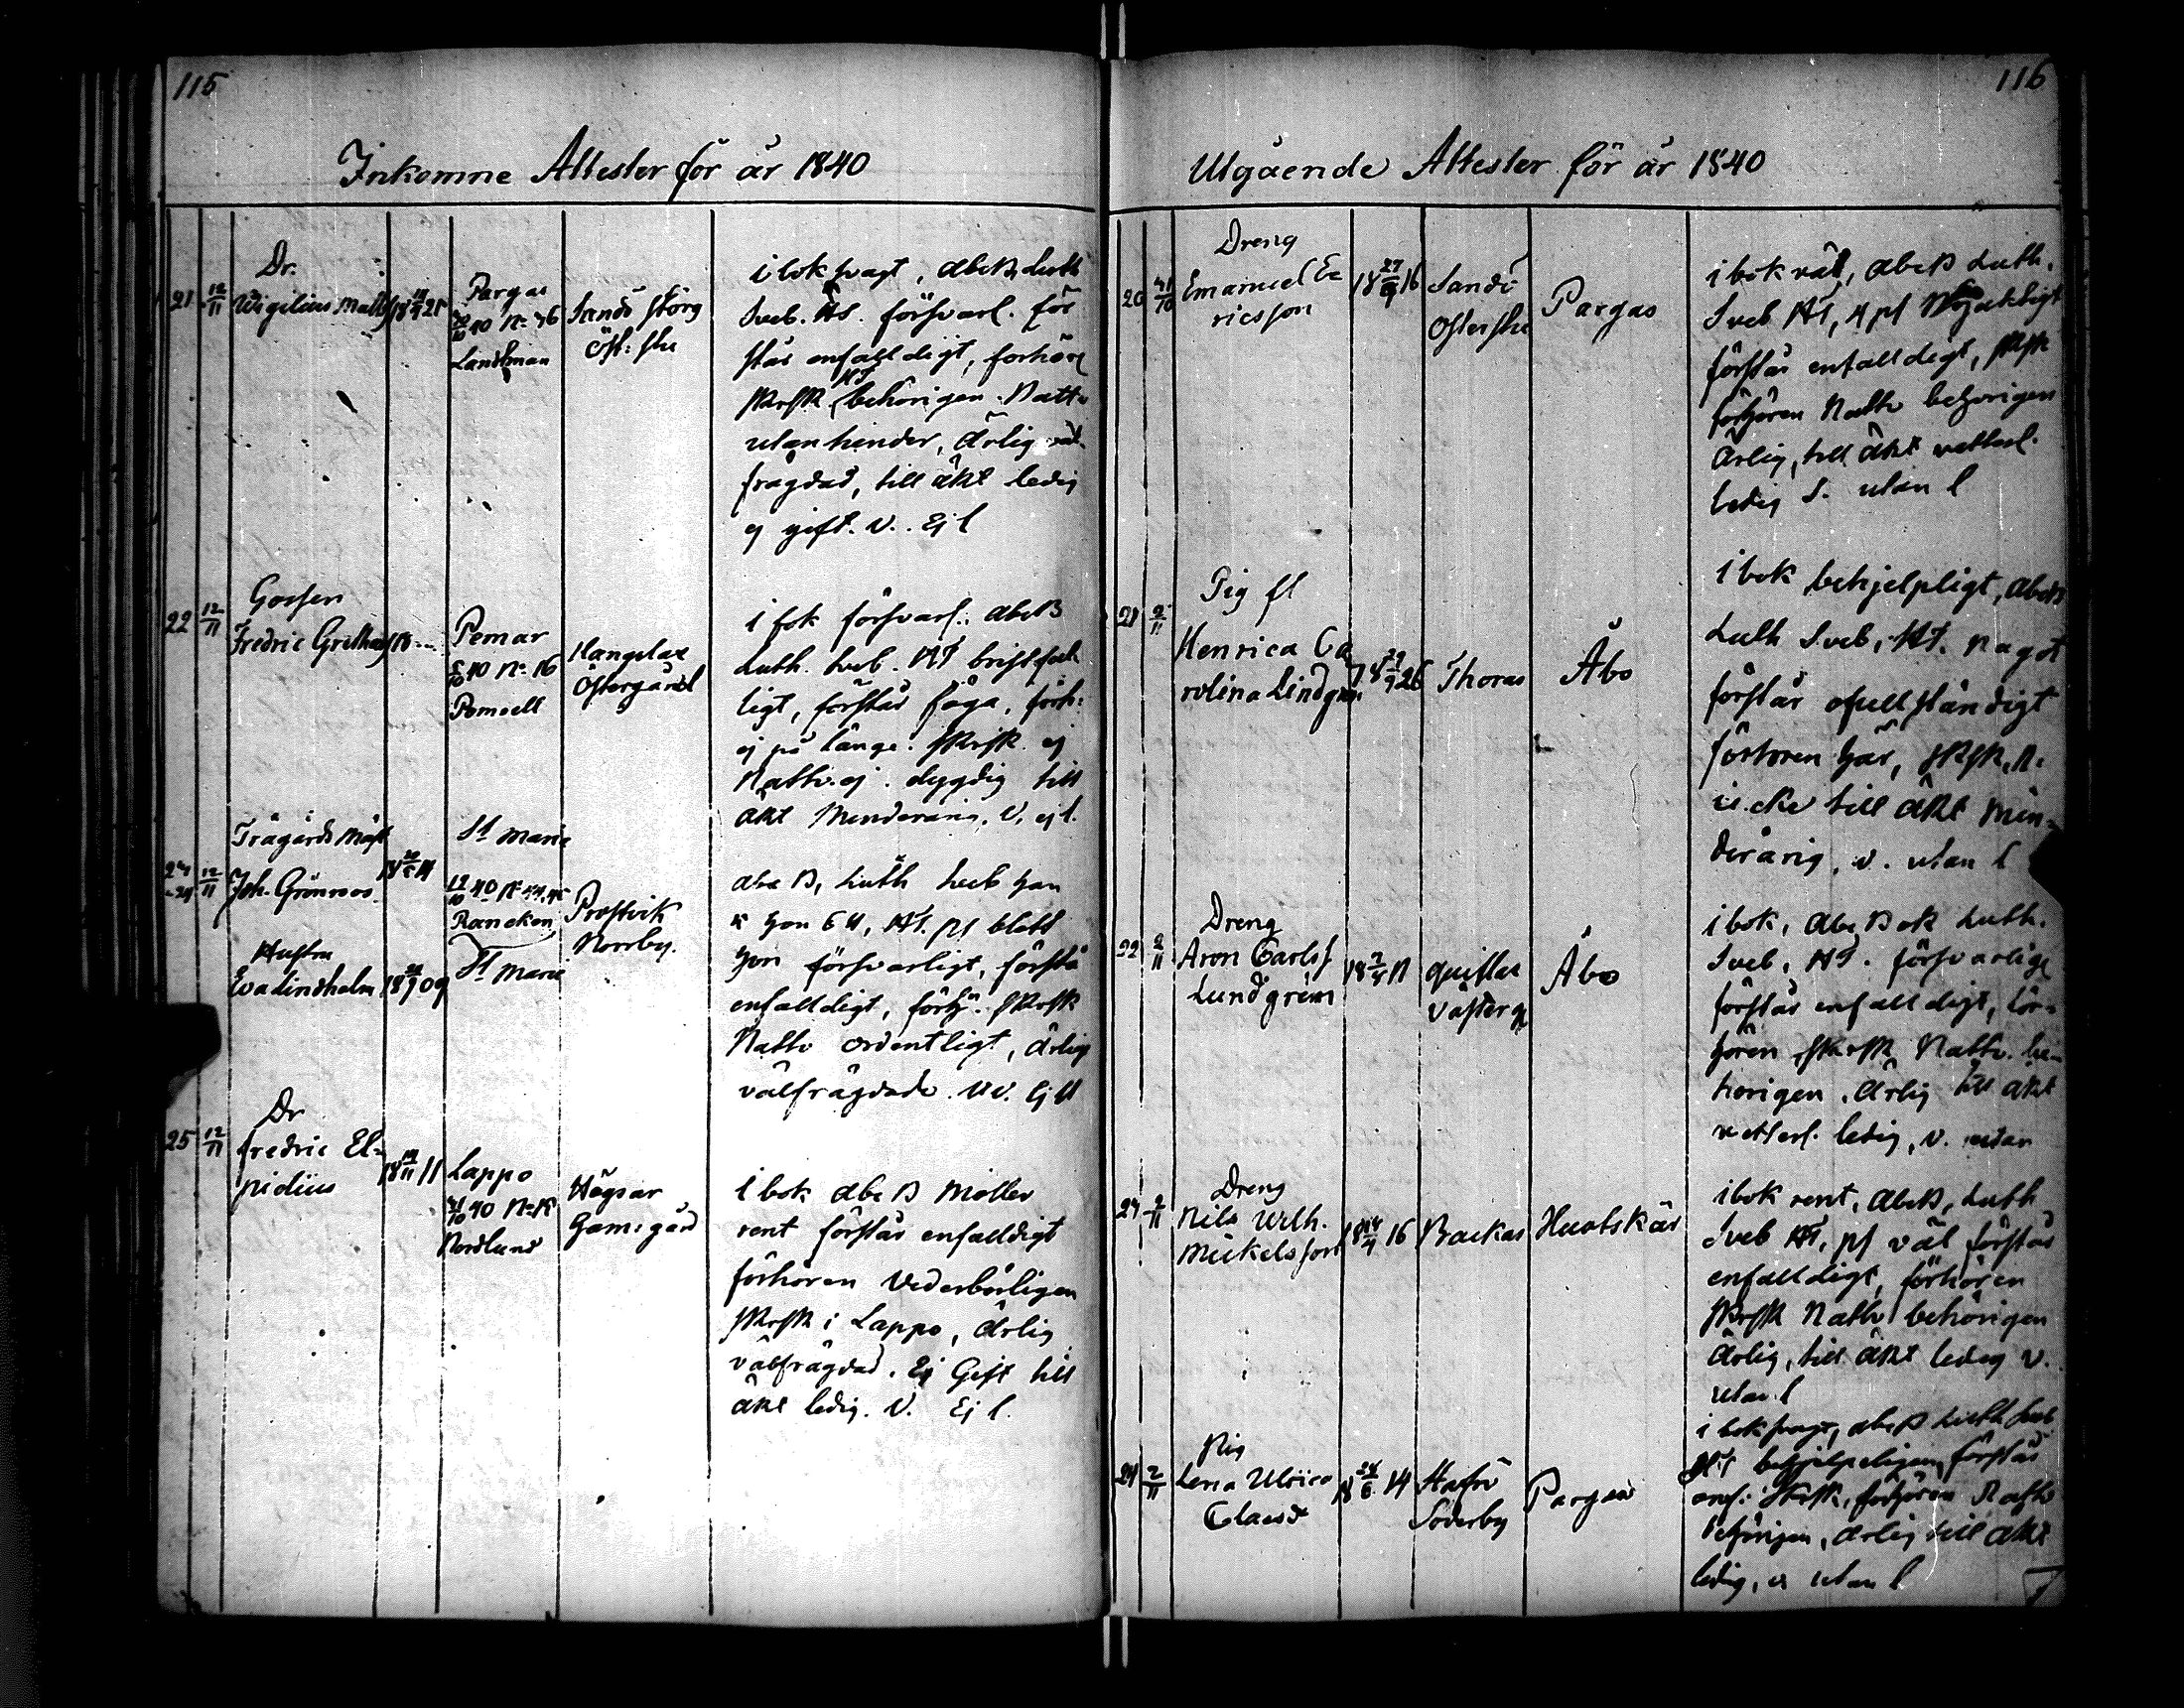 115
Inkomne Attester för år 1840
21 12/11
Dr.
Wigilius Matts
Pargas
40 No 46
Landtman
Sandö Störg
i bok svagt, abcB, Luth
Sveb. HT. försvarl. för
står enfalldigt, förhörl
skrsk HT behörigen. Nattv
utan hinder, Ärlig väl-
frägdad, till äkt ledig
ej gift. v. Ej l
22 12/11
Gossen
Fredric
Pemar
40 No 16
Pomoell
Hangelax
Östergård
i bok försvarl. abcB
Luth. Sveb. HT bristfäl
ligt, förstår föga, förh:
ej på länge. skrsk. ej
Nattv. ej. dygdig till
äkt Minderårig. v. ej l.
12/11
Trägårds Mäst
Joh. Grönroos
St Marie
12/10 40 No 44,45
Rancken
Hustru
Eva Lindholm
18 09
St Marie
Prostvik
Norrby.
abc B, Luth Sveb han
hon 6 H, HT. ps blott
hon försvarligt, förstå
enfalldigt, förhö. skrsk
Nattv ordentligt, ärlig
välfrägdade. v v. Ej ll
25 12/11
Dr
Fredric El-
pidius
18 11
Lappo
40 No 18
Nordlund
Högsar
Gamgård
i bok abc B Möller
rent förstår enfalldigt
förhören Vederbörligen
skrsk i Lappo, ärlig
välfrägdad. Ej Gift till
äkt ledig. v. Ej l.
116
Utgående Attester för år 1840
20
Dreng
Emanuel Er
icsson
18 27/9 16
Sandö
Pargas
i bok väl, abcB Luth.
Sveb HT, H ps Nöjaktligt
förstår enfalldigt, skrsk
förhören Nattv behörigen
Ärlig, till äkt vetterl.
ledig v. utan l
21 2/11
Pig fl
Henrica Ca
rolina Lindgren
18 29/9 26
Thoras
Åbo
i bok behjelpligt, abcB
Luth Sveb, HT. något
förstår ofullständigt
förhören här, skrsk, N.
icke till äkt Min-
derårig, v. utan l
22 2/11
Dreng
Aron Carlss
Lundgren
18 17
Qvistlax
Västerg
Åbo
i bok, abc B ok Luth.
Sveb, HT. försvarlig
förstår enfalldigt, för-
hören skrsk Nattv. be-
hörigen. Ärlig till äkt
vetterl. ledig, v. utan
2/11
Dreng
Nils Wilh.
Mickelsson
18 14/4 16
Backas
Huotskär
i bok rent, abcB, Luth
Sveb HT, ps väl förstår
enfalldigt, förhören
skrsk Nattv behörigen
Ärlig, till äkt ledig v.
utan l
24 2/11
Pig
Lena Ulrica
Claesd
18 24/6 14
Hafrö
Söderby
Pargas
i bok svagt, abcB Luth Sveb
HT behjelpeligen förstår
enf: skrsk, förhören Nattv
behörigen, ärlig till äkt
ledig, v utan l